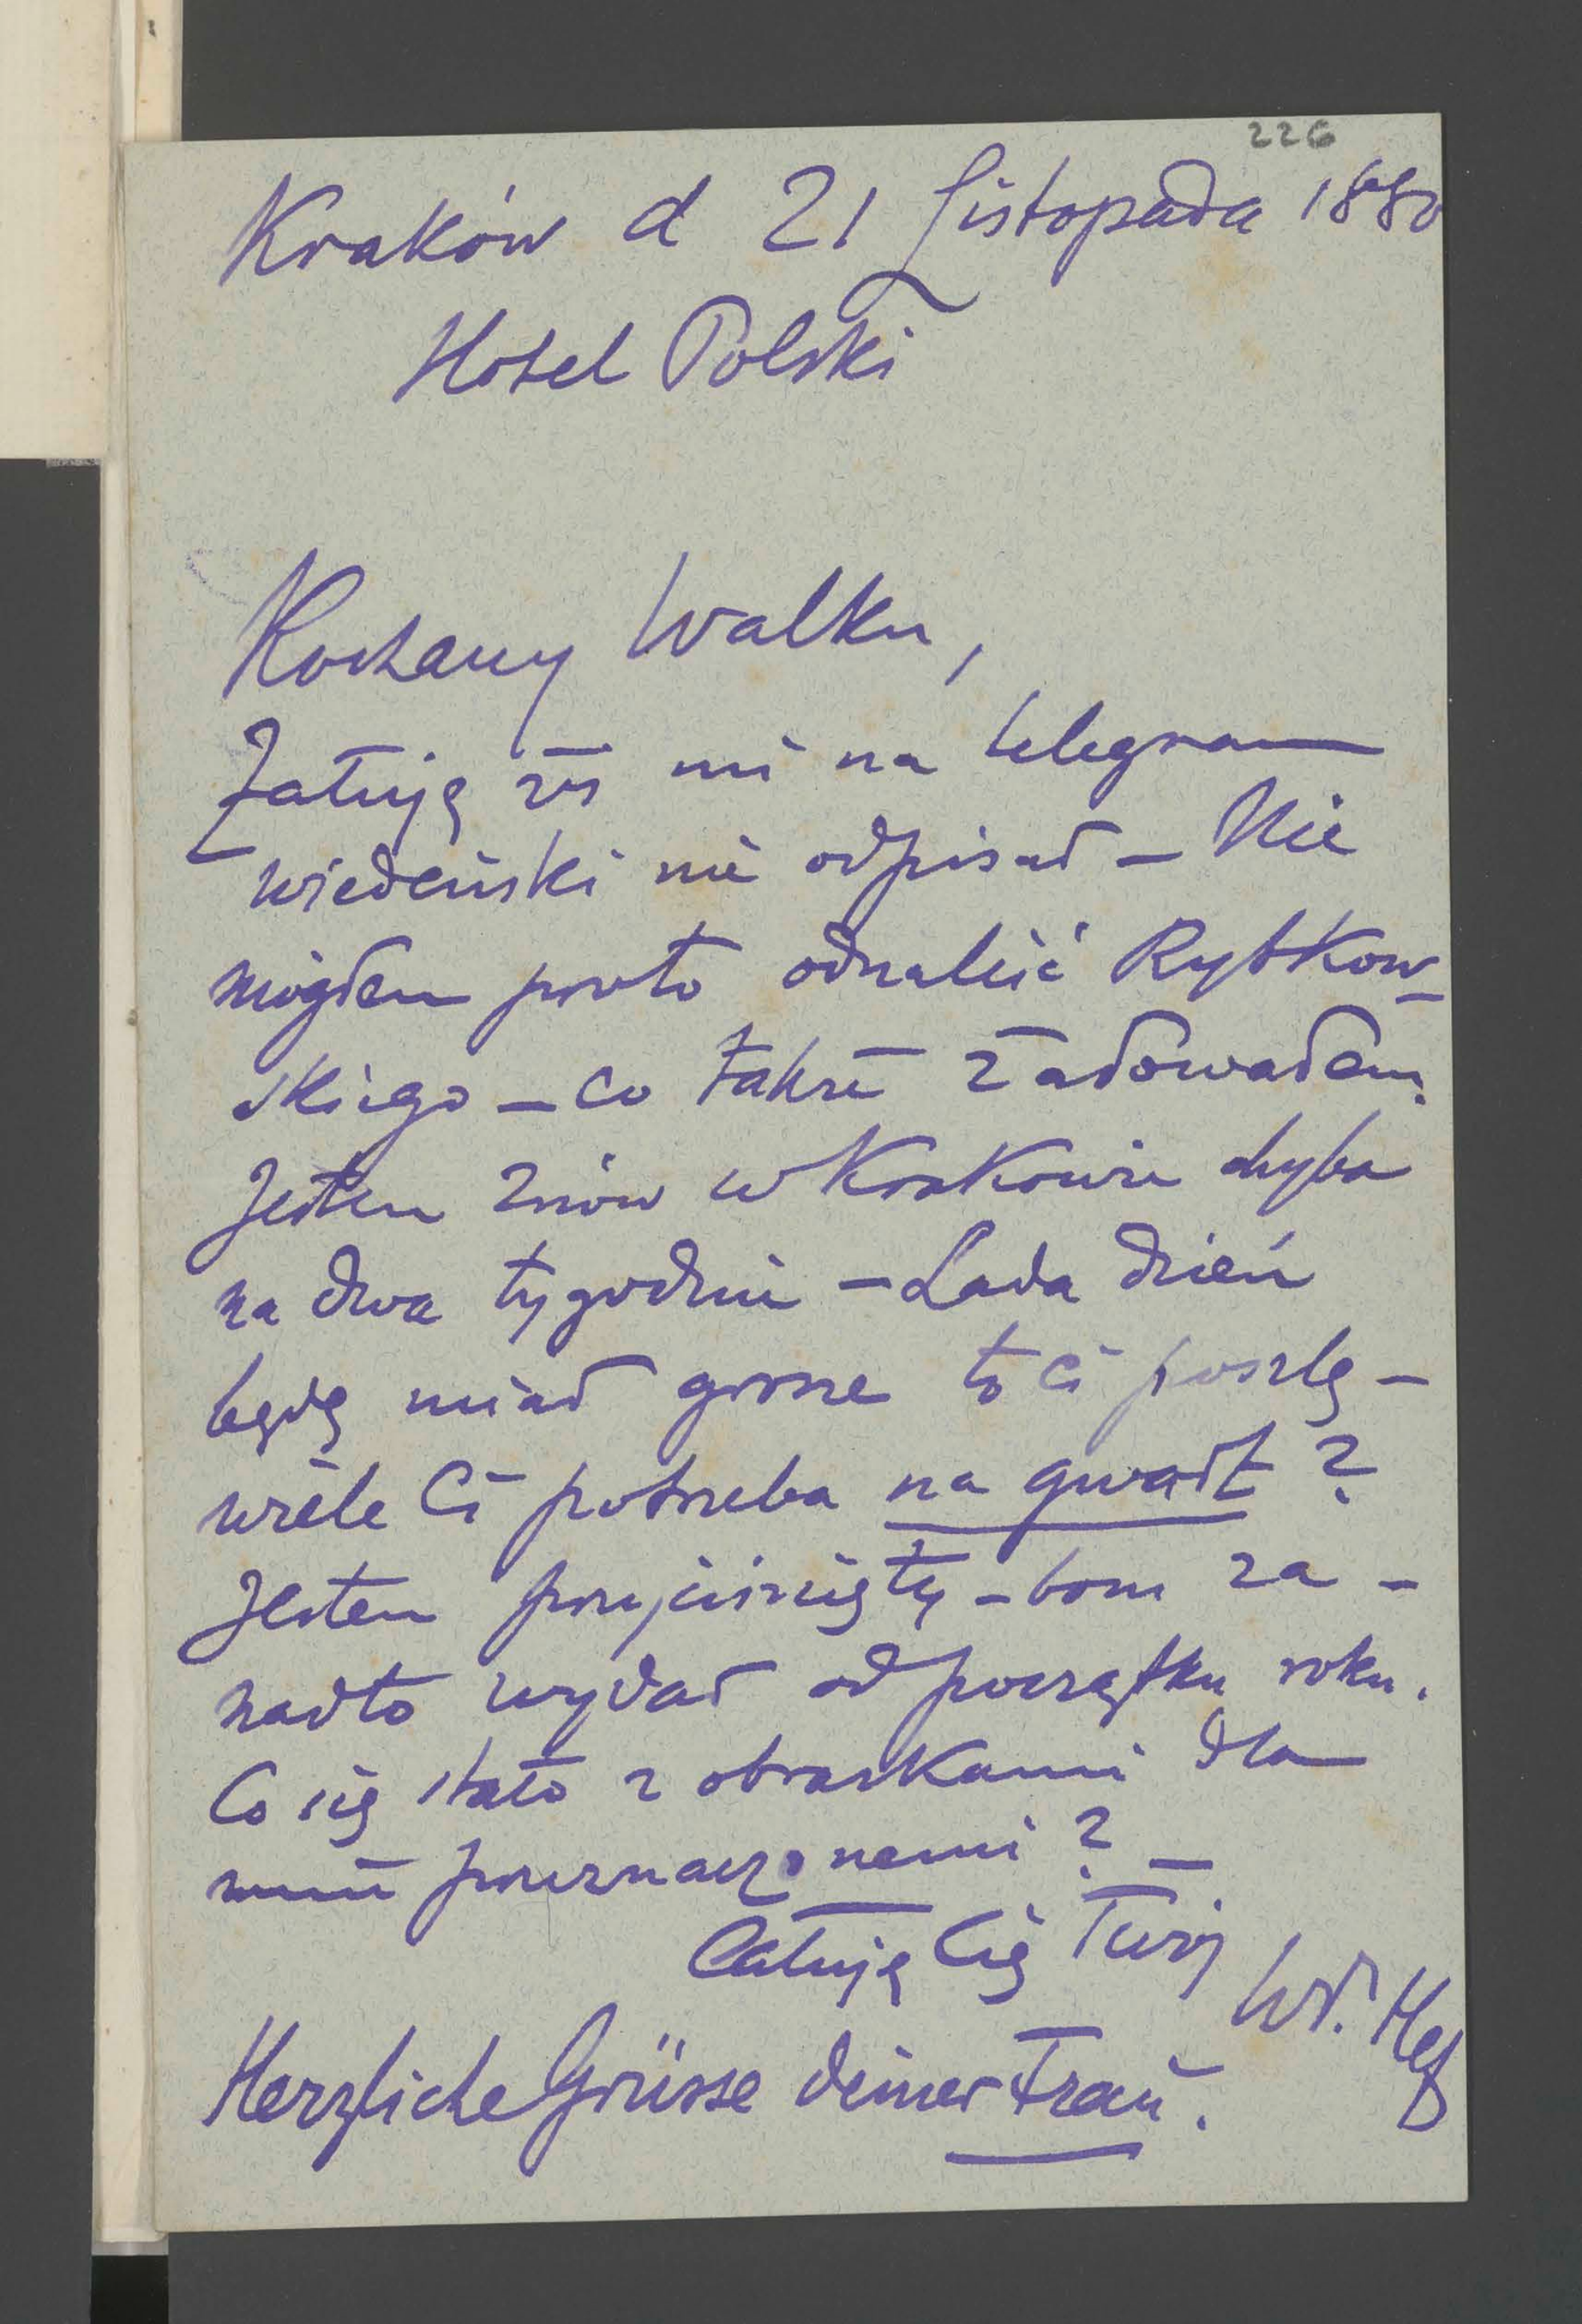 226
Kraków d 21 Listopada 1880
Hotel Polski
Kochany Walku,
Żałuję żeś mi na telegram
wiedeński nie odpisał – Nie
mogłem przeto odnaleść Rybkow-
skiego – co także żałowałem.
Jestem znów w Krakowie chyba
na dwa tygodnie – Lada dzień
będę miał grosze to Ci poszlę –
wiele Ci potrzeba na gwałt ?
Jestem przyciśnięty – bom za-
nadto wydał od początku roku.
Co się stało z obrazkami dla
mnie przeznaczonemi ? –
Całuję Cię Twój
Wł. Hef
Herzliche Grüsse deiner Frau.